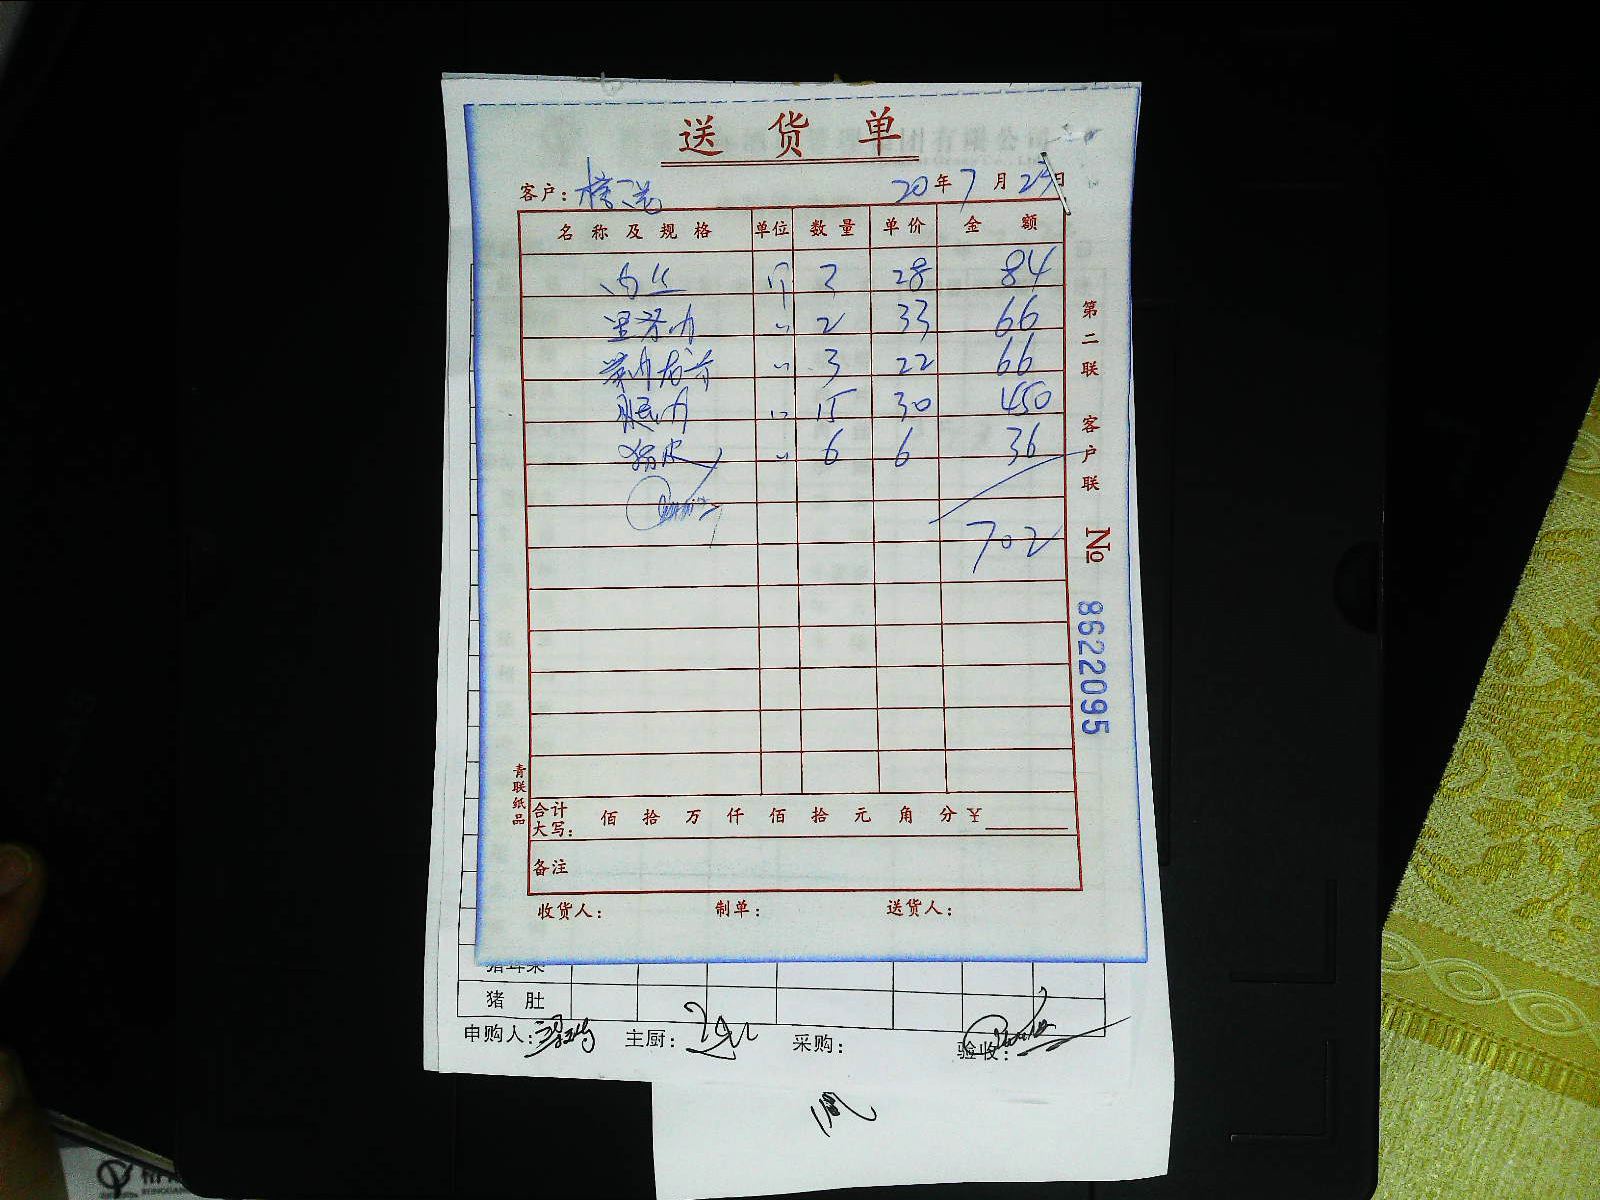 送货单
客户:
20年7月25日
名称及规格 单位 数量 单价 金额
肉丝 个 3 28 84
里脊肉 〃 2 33 66
〃 3 22 66
腿肉 〃 15 30 450
猪皮 〃 6 6 36
702
第二联 客户联
№ 8622095
青联纸品
合计大写: 佰 拾 万 仟 佰 拾 元 角 分 ¥
备注
收货人: 制单: 送货人:
猪耳朵
猪肚
申购人: 主厨: 采购: 验收: